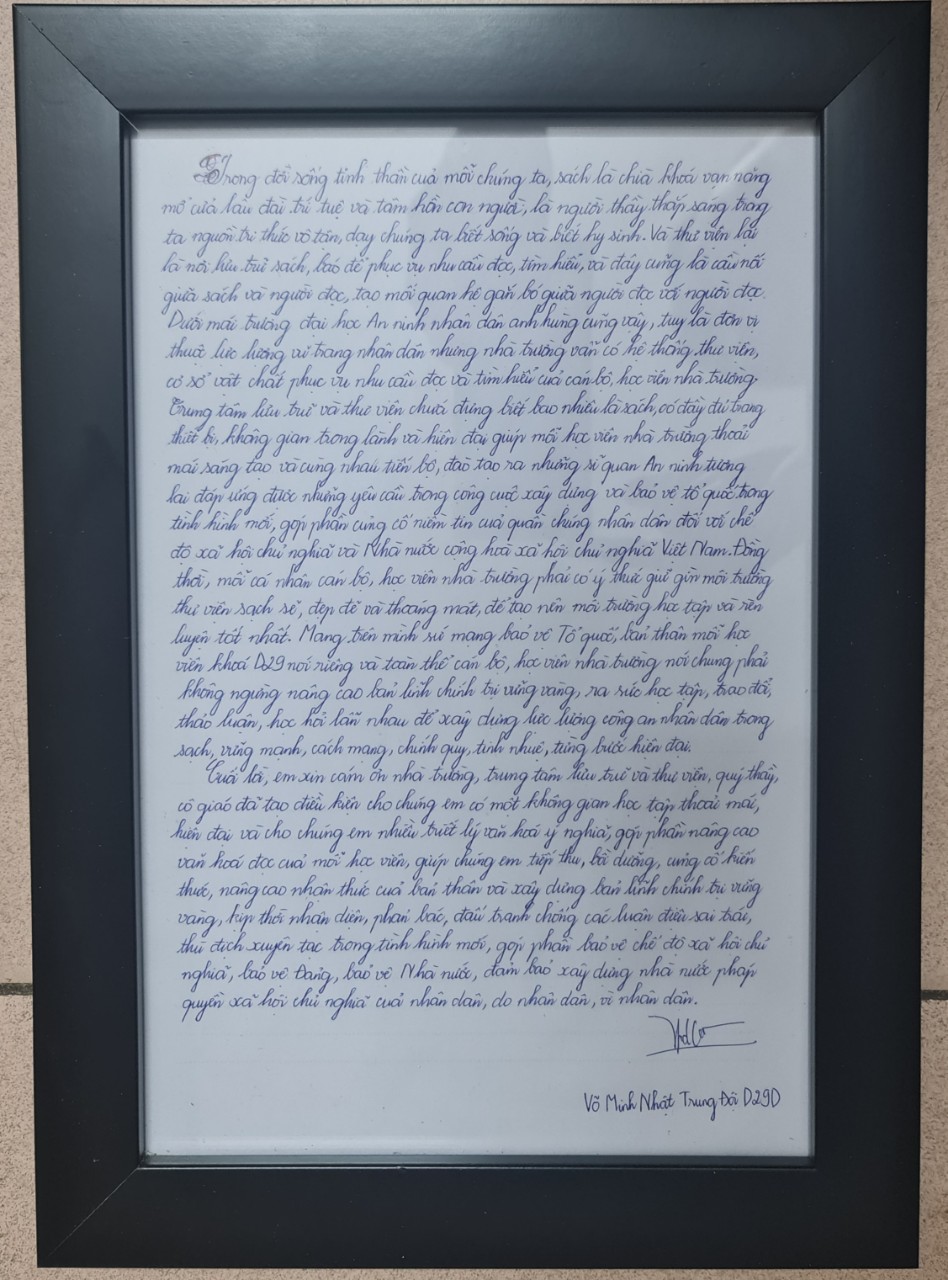 Trong đời sống tinh thần của mỗi chúng ta, sách là chìa khoá vạn năng
mở cửa lâu đài trí tuệ và tâm hồn con người, là người thầy thắp sáng trong
ta nguồn tri thức vô tận, dạy chúng ta biết sống và biết hy sinh. Và thư viện lại
là nơi lưu trữ sách, báo để phục vụ nhu cầu đọc, tìm hiểu, và đây cũng là cầu nối
giữa sách và người đọc, tạo mối quan hệ gắn bó giữa người đọc với người đọc.
Dưới mái trường đại học An ninh nhân dân anh hùng cũng vậy, tuy là đơn vị
thuộc lực lượng vũ trang nhân dân nhưng nhà trường vẫn có hệ thống thư viện,
cơ sở vật chất phục vụ nhu cầu đọc và tìm hiểu của cán bộ, học viên nhà trường.
Trung tâm lưu trữ và thư viện chứa đựng biết bao nhiêu là sách, có đầy đủ trang
thiết bị, không gian trong lành và hiện đại giúp mỗi học viên nhà trường thoải
mái sáng tạo và cùng nhau tiến bộ, đào tạo ra những sĩ quan An ninh tương
lai đáp ứng được những yêu cầu trong công cuộc xây dựng và bảo vệ tổ quốc trong
tình hình mới, góp phần củng cố niềm tin của quần chúng nhân dân đối với chế
độ xã hội chủ nghĩa và Nhà nước cộng hoà xã hội chủ nghĩa Việt Nam. Đồng
thời, mỗi cá nhân cán bộ, học viên nhà trường phải có ý thức giữ gìn môi trường
thư viện sạch sẽ, đẹp đẽ và thoáng mát, để tạo nên môi trường học tập và rèn
luyện tốt nhất. Mang trên mình sứ mạng bảo vệ Tổ quốc, bản thân mỗi học
viên khoá D29 nói riêng và toàn thể cán bộ, học viên nhà trường nói chung phải
không ngừng nâng cao bản lĩnh chính trị vững vàng, ra sức học tập, trao đổi,
thảo luận, học hỏi lẫn nhau để xây dựng lực lượng công an nhân dân trong
sạch, vững mạnh, cách mạng, chính quy, tinh nhuệ, từng bước hiện đại.
Cuối lời, em xin cám ơn nhà trường, trung tâm lưu trữ và thư viện, quý thầy,
cô giáo đã tạo điều kiện cho chúng em có một không gian học tập thoải mái,
hiện đại và cho chúng em nhiều triết lý văn hoá ý nghĩa, góp phần nâng cao
văn hoá đọc của mỗi học viên, giúp chúng em tiếp thu, bồi dưỡng, củng cố kiến
thức, nâng cao nhận thức của bản thân và xây dựng bản lĩnh chính trị vững
vàng, kịp thời nhận diện, phản bác, đấu tranh chống các luận điệu sai trái,
thù địch xuyên tạc trong tình hình mới, góp phần bảo vệ chế độ xã hội chủ
nghĩa, bảo vệ Đảng, bảo vệ Nhà nước, đảm bảo xây dựng nhà nước pháp
quyền xã hội chủ nghĩa của nhân dân, do nhân dân, vì nhân dân.
Võ Minh Nhật Trung Đội D29D